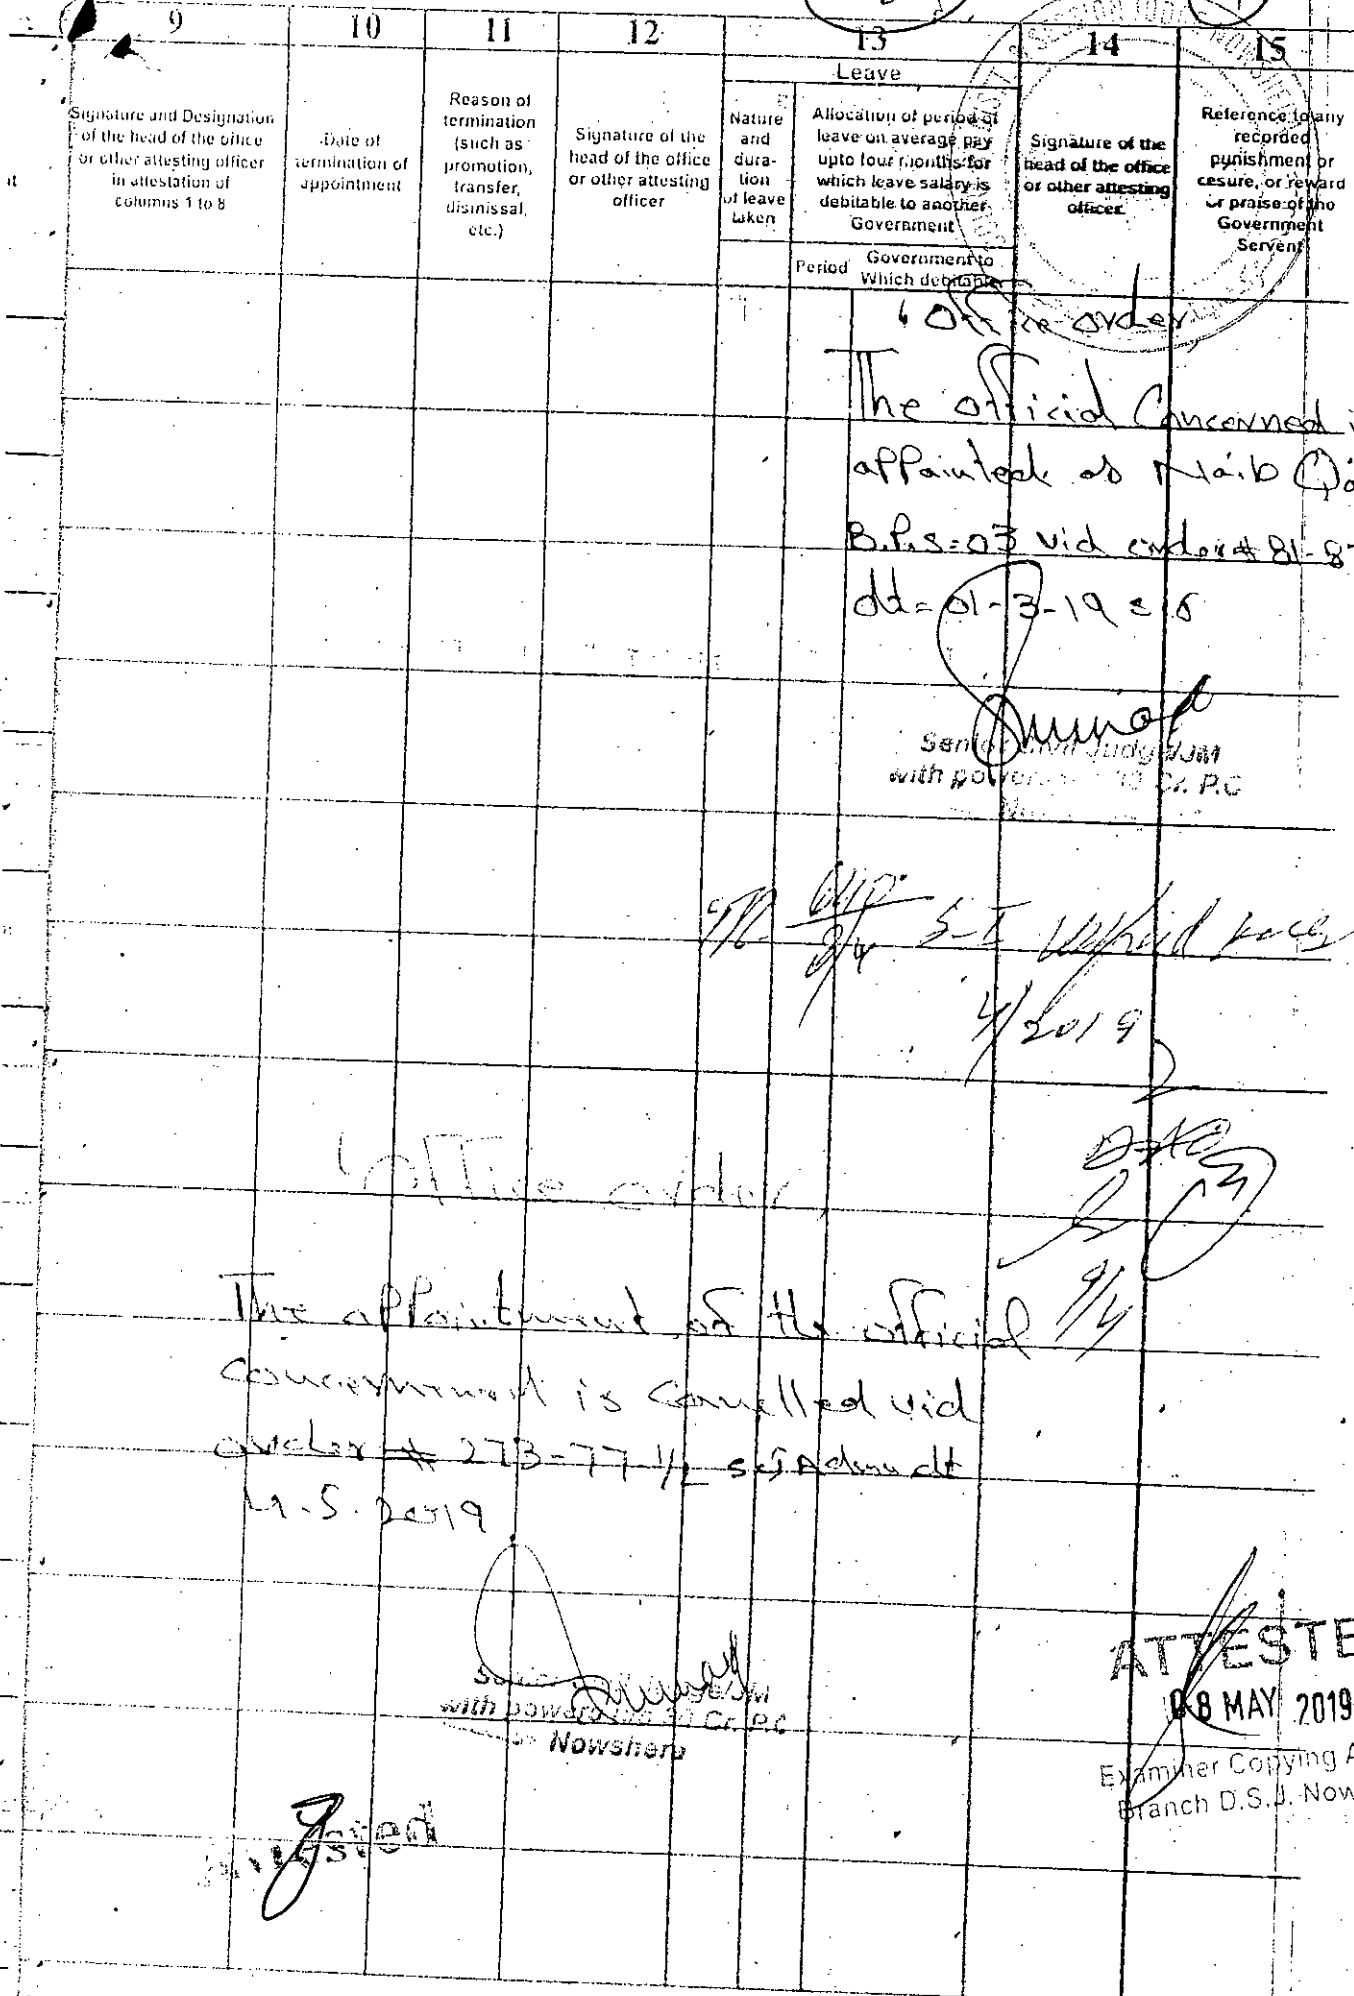 9 10 11 12 13 14 15
Leave
Signature and Designation
of the head of the office
or other attesting officer
in attestation of
columns 1 to 8
Date of
termination of
appointment
Reason of
termination
(such as
promotion,
transfer,
disinissal,
etc.)
Signature of the
head of the office
or other attesting
officer
Nature
and
dura-
tion
of leave
taken
Allocation of period of
leave on average pay
upto four months for
which leave salary is
debitable to another
Government
Period
Government to
Which debitable
Signature of the
head of the office
or other attesting
officer
Reference to any
recorded
punishment or
cesure, or reward
or praise of the
Government
Servent
Office order
The official Concerned i
appointed as Naib Qa
B.P.S=03 vid order # 81-8
dt=01-3-19
Senior Civil Judge/JM
with powers Cr. P.C
4/2019
9/4
Office order
The appointment of the official
concerned is Canelled vid
order # 273-77-1/2 scj Admn dt
4.5.2019
with powers 30 Cr. P.C
Nowshera
ATTESTE
08 MAY 2019
Examiner Copying A
Branch D.S.J. Now